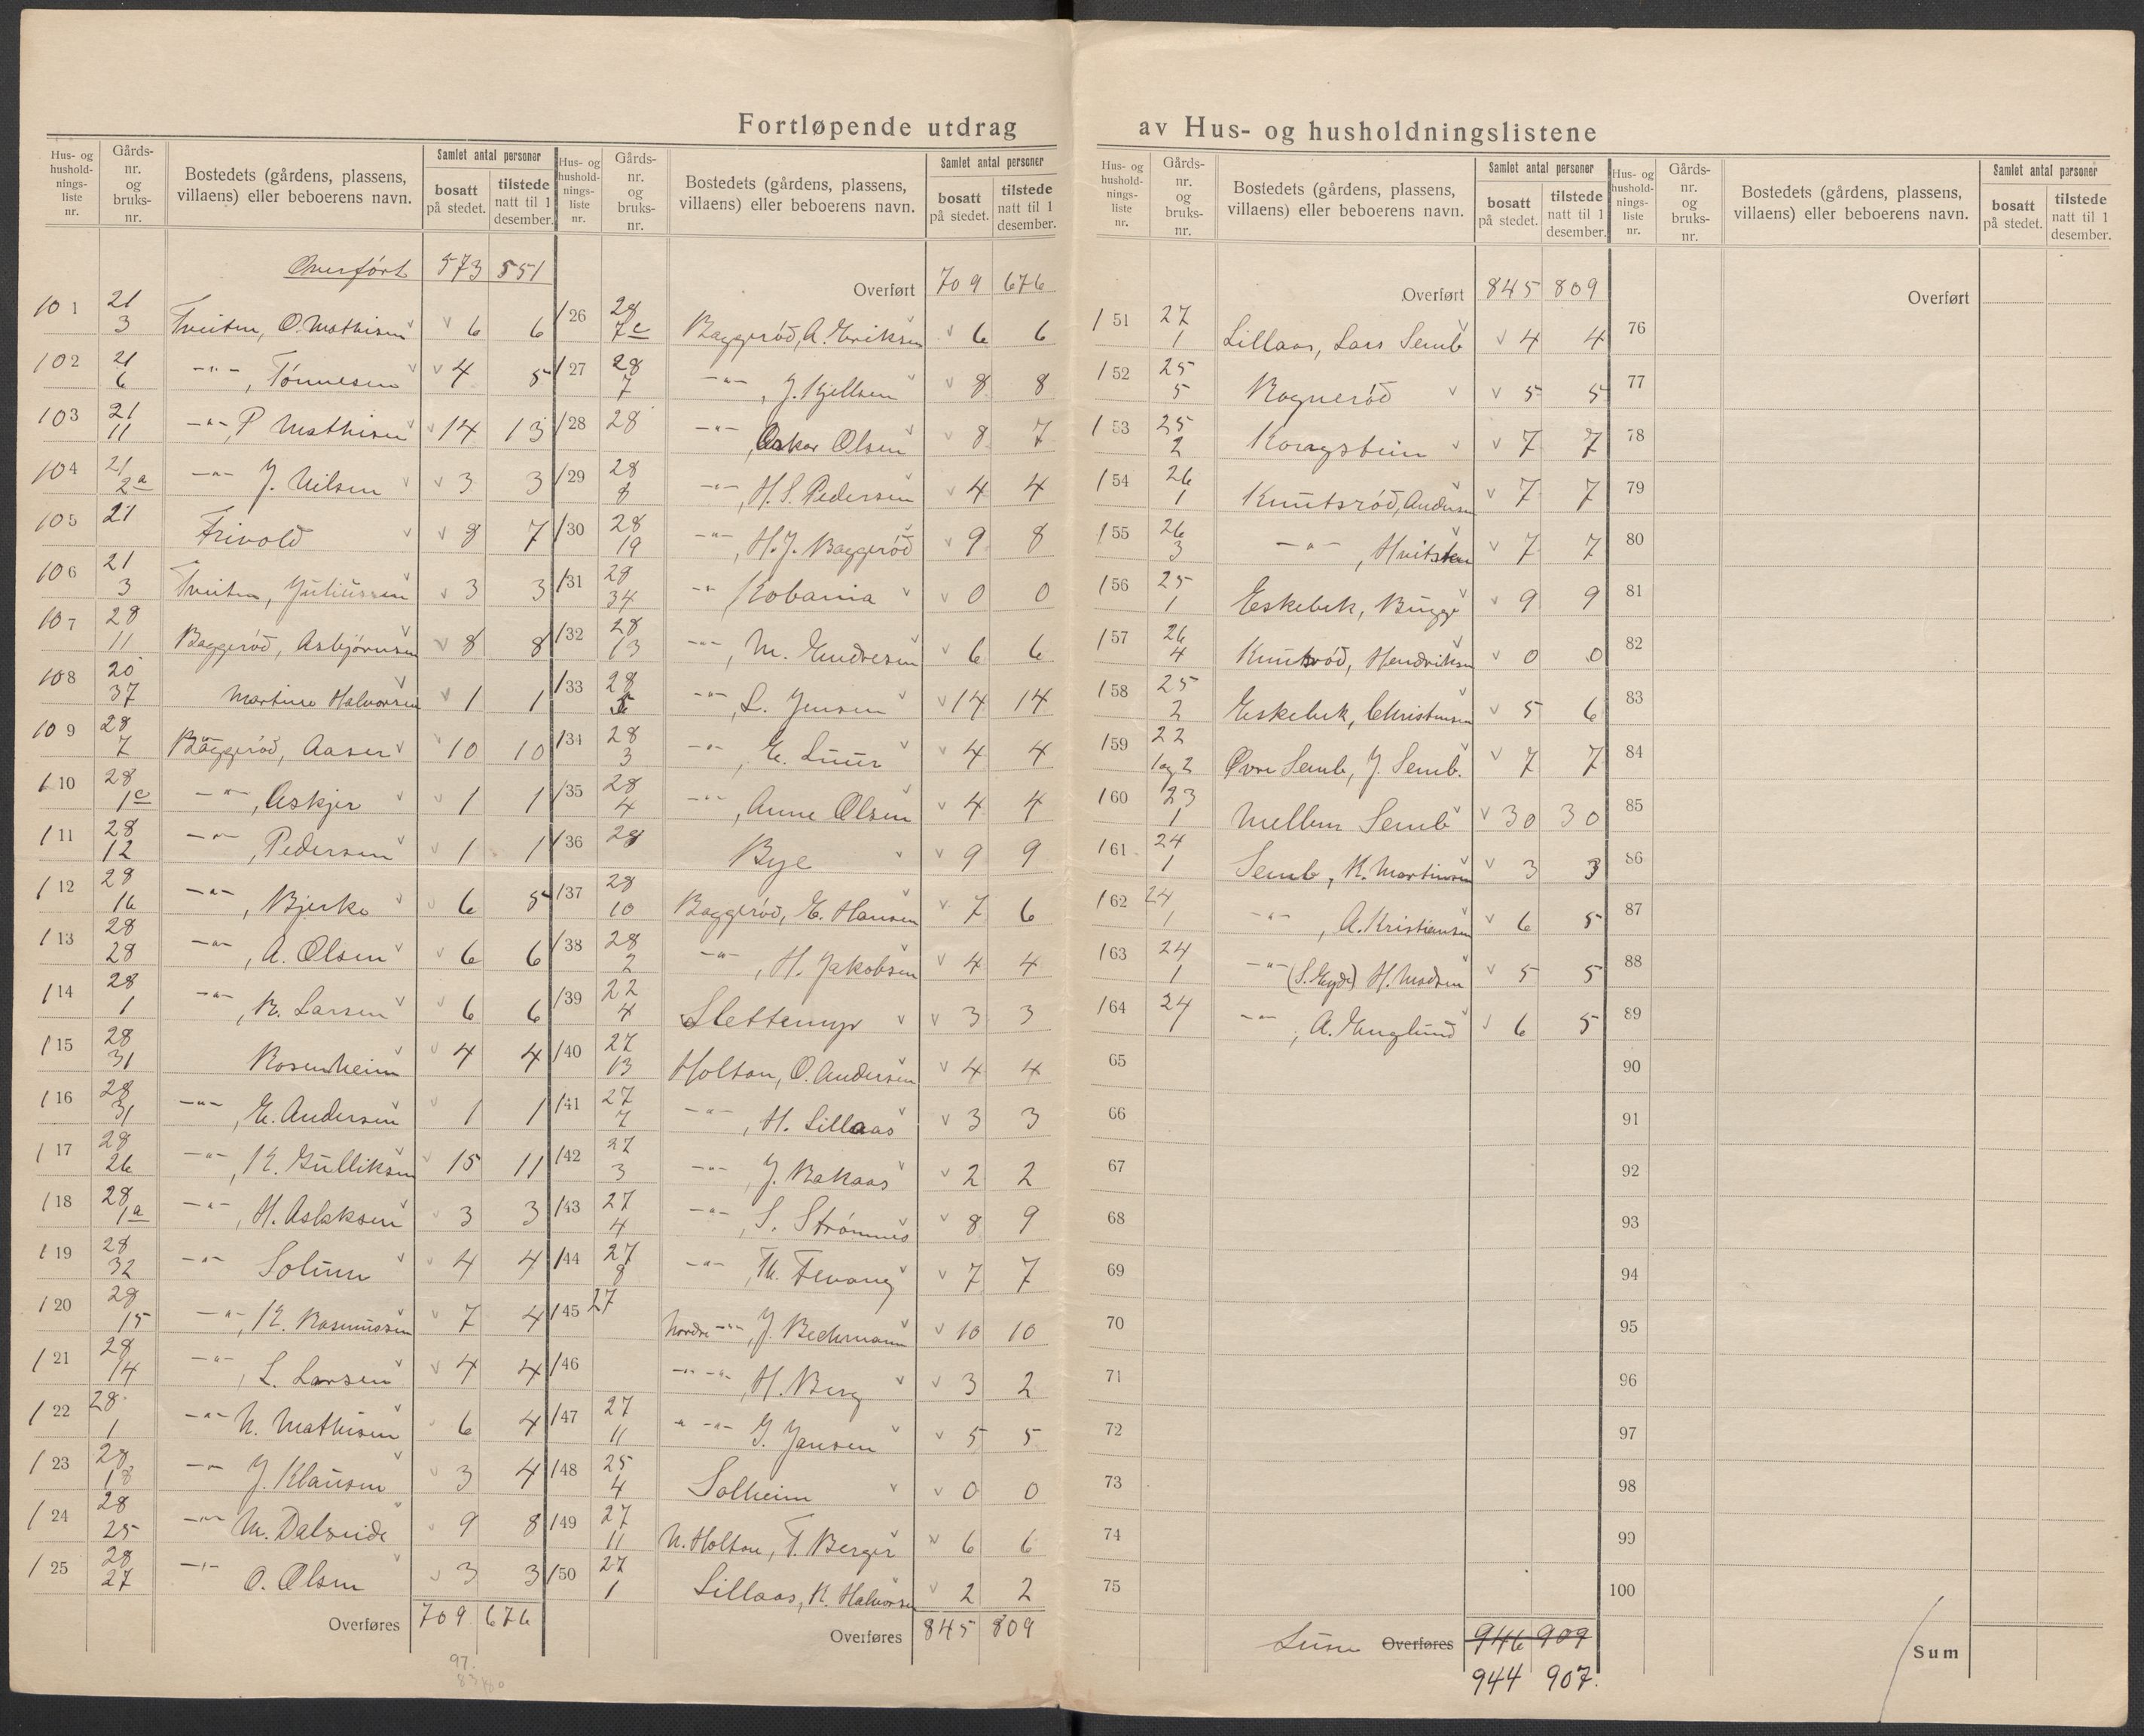 Fortløpende utdrag av Hus- og husholdningslistene
Hus- og hushold-nings-liste nr. | Gårds-nr. og bruks-nr. | Bostedets (gårdens, plassens, villaens) eller beboerens navn. | Samlet antal personer | bosatt på stedet. | tilstede natt til 1 desember.
Overført 573 551
101 21 3 Tveiten, O. Mathisen v 6 6
102 21 6 —"—, Tønnesen v 4 5
103 21 11 —"— P Mathisen v 14 13
104 21 2a —"— J. Nilsen v 3 3
105 21 Frivold v 8 7
106 21 3 Tveiten, Juliussen v 3 3
107 28 11 Baggerød, Asbjørnsen v 8 8
108 20 37 Martine Halvorsen v 1 1
109 28 7 Baggerød, Aaser v 10 10
110 28 1c —"—, Askjer v 1 1
111 28 12 —"—, Pedersen v 1 1
112 28 16 —"—, Bjerke v 6 5
113 28 28 —"—, A. Olsen v 6 6
114 28 1 —"—, R. Larsen v 6 6
115 28 31 Rosenheim v 4 4
116 28 31 —"—, E. Andersen v 1 1
117 28 26 —"—, K. Gulliksen v 15 11
118 28 1a —"—, H. Aslaksen v 3 3
119 28 32 —"— Solum v 4 4
120 28 15 —"—, K. Rasmussen v 7 4
121 28 14 —"—, L. Larsen v 4 4
122 28 1 —"— N. Mathisen v 6 4
123 28 18 —"— J. Klausen v 3 4
124 28 25 —"— M. Dalseide v 9 8
125 28 27 —"— O. Olsen v 3 3
Overføres 709 676
97.
Hus- og hushold-nings-liste nr. | Gårds-nr. og bruks-nr. | Bostedets (gårdens, plassens, villaens) eller beboerens navn. | Samlet antal personer | bosatt på stedet. | tilstede natt til 1 desember.
Overført 709 676
/26 28 7c Baggerød, A. Eriksen v 6 6
/27 28 7 —"—, J. Kjellsen v 8 8
/28 28 —"—, Oskar Olsen v 8 7
/29 28 8 —"—, H. S. Pedersen v 4 4
/30 28 19 —"—, H. J. Baggerød v 9 8
/31 28 34 —"— Kobania v 0 0
/32 28 13 —"—, M. Endresen v 6 6
/33 28 5 —"—, L. Jensen v 14 14
/34 28 3 —"—, E. Linier v 4 4
/35 28 4 —"—, Anne Olsen v 4 4
/36 28 Bye v 9 9
/37 28 10 Baggerød, E. Hansen v 7 6
/38 28 2 —"—, H. Jakobsen v 4 4
/39 22 4 Slettemyr v 3 3
/40 27 13 Holtan, O. Andersen v 4 4
/41 27 7 —"—, H. Lillaas v 3 3
/42 27 3 —"— J. Bakaas v 2 2
/43 27 4 —"—, S. Strømnes v 8 9
/44 27 8 —"—, Th. Fevang v 7 7
/45 27 Nordre —"—, J. Beckmann v 10 10
/46 —"— —"—, H. Berg v 3 2
/47 27 11 " —"— G. Jansen v 5 5
/48 25 4 Solheim v 0 0
/49 27 11 N. Holtan, T. Berger v 6 6
/50 27 1 Lillaas, K. Halvorsen v 2 2
Overføres 845 809
Hus- og hushold-nings-liste nr. | Gårds-nr. og bruks-nr. | Bostedets (gårdens, plassens, villaens) eller beboerens navn. | Samlet antal personer | bosatt på stedet. | tilstede natt til 1 desember.
Overført 845 809
/51 27 1 Lillaas, Lars Semb v 4 4
/52 25 5 Rognerød v 5 5
/53 25 2 Kongstein v 7 7
/54 26 1 Knutsrød, Andersen v 7 7
/55 26 3 —"—, Hvitsten v 7 7
/56 25 1 Eskebek, Bugge v 9 9
/57 26 4 Knutsrød, Hendriksen v 0 0
/58 25 2 Eskebek, Christensen v 5 6
/59 22 1og2 Øvre Semb, J. Semb. v 7 7
/60 23 1 Mellem Semb v 30 30
/61 24 1 Semb, K. Martinsen v 3 3
/62 24 1 —"—, A. Kristiansen v 6 5
/63 24 1 —"— H. Madsen v 5 5
/64 24 —"—, A. Englund v 6 5
65
66
67
68
69
70
71
72
73
74
75
Sum Overføres 946 909
944 907.
Hus- og hushold-nings-liste nr. | Gårds-nr. og bruks-nr. | Bostedets (gårdens, plassens, villaens) eller beboerens navn. | Samlet antal personer | bosatt på stedet. | tilstede natt til 1 desember.
Overført
76
77
78
79
80
81
82
83
84
85
86
87
88
89
90
91
92
93
94
95
96
97
98
99
100
Sum